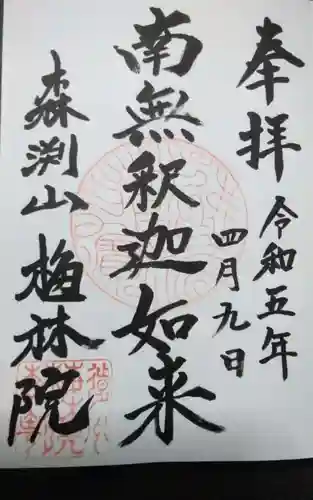 奉拝
令和五年
四月九日
南無釈迦如来
森渕山
梅林院